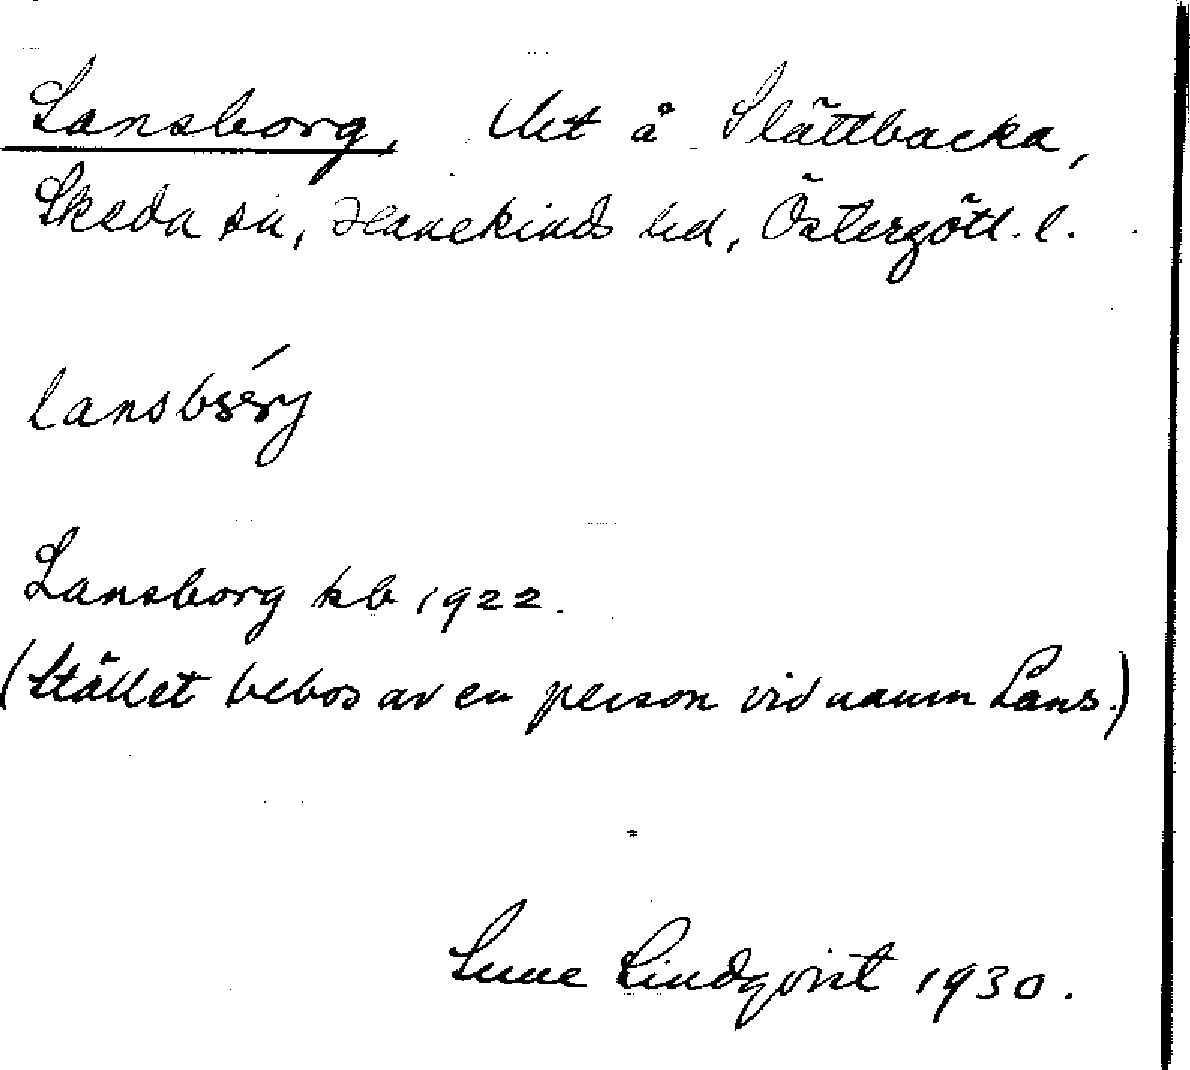 Lansborg, lht å Slättbacka,
Skeda sn, Hanekinds hd, Östergötl. l.
Lansborg kb 1922.
(Stället bebos av en person vid namn Lans.)
Sune Lindqvist 1930.